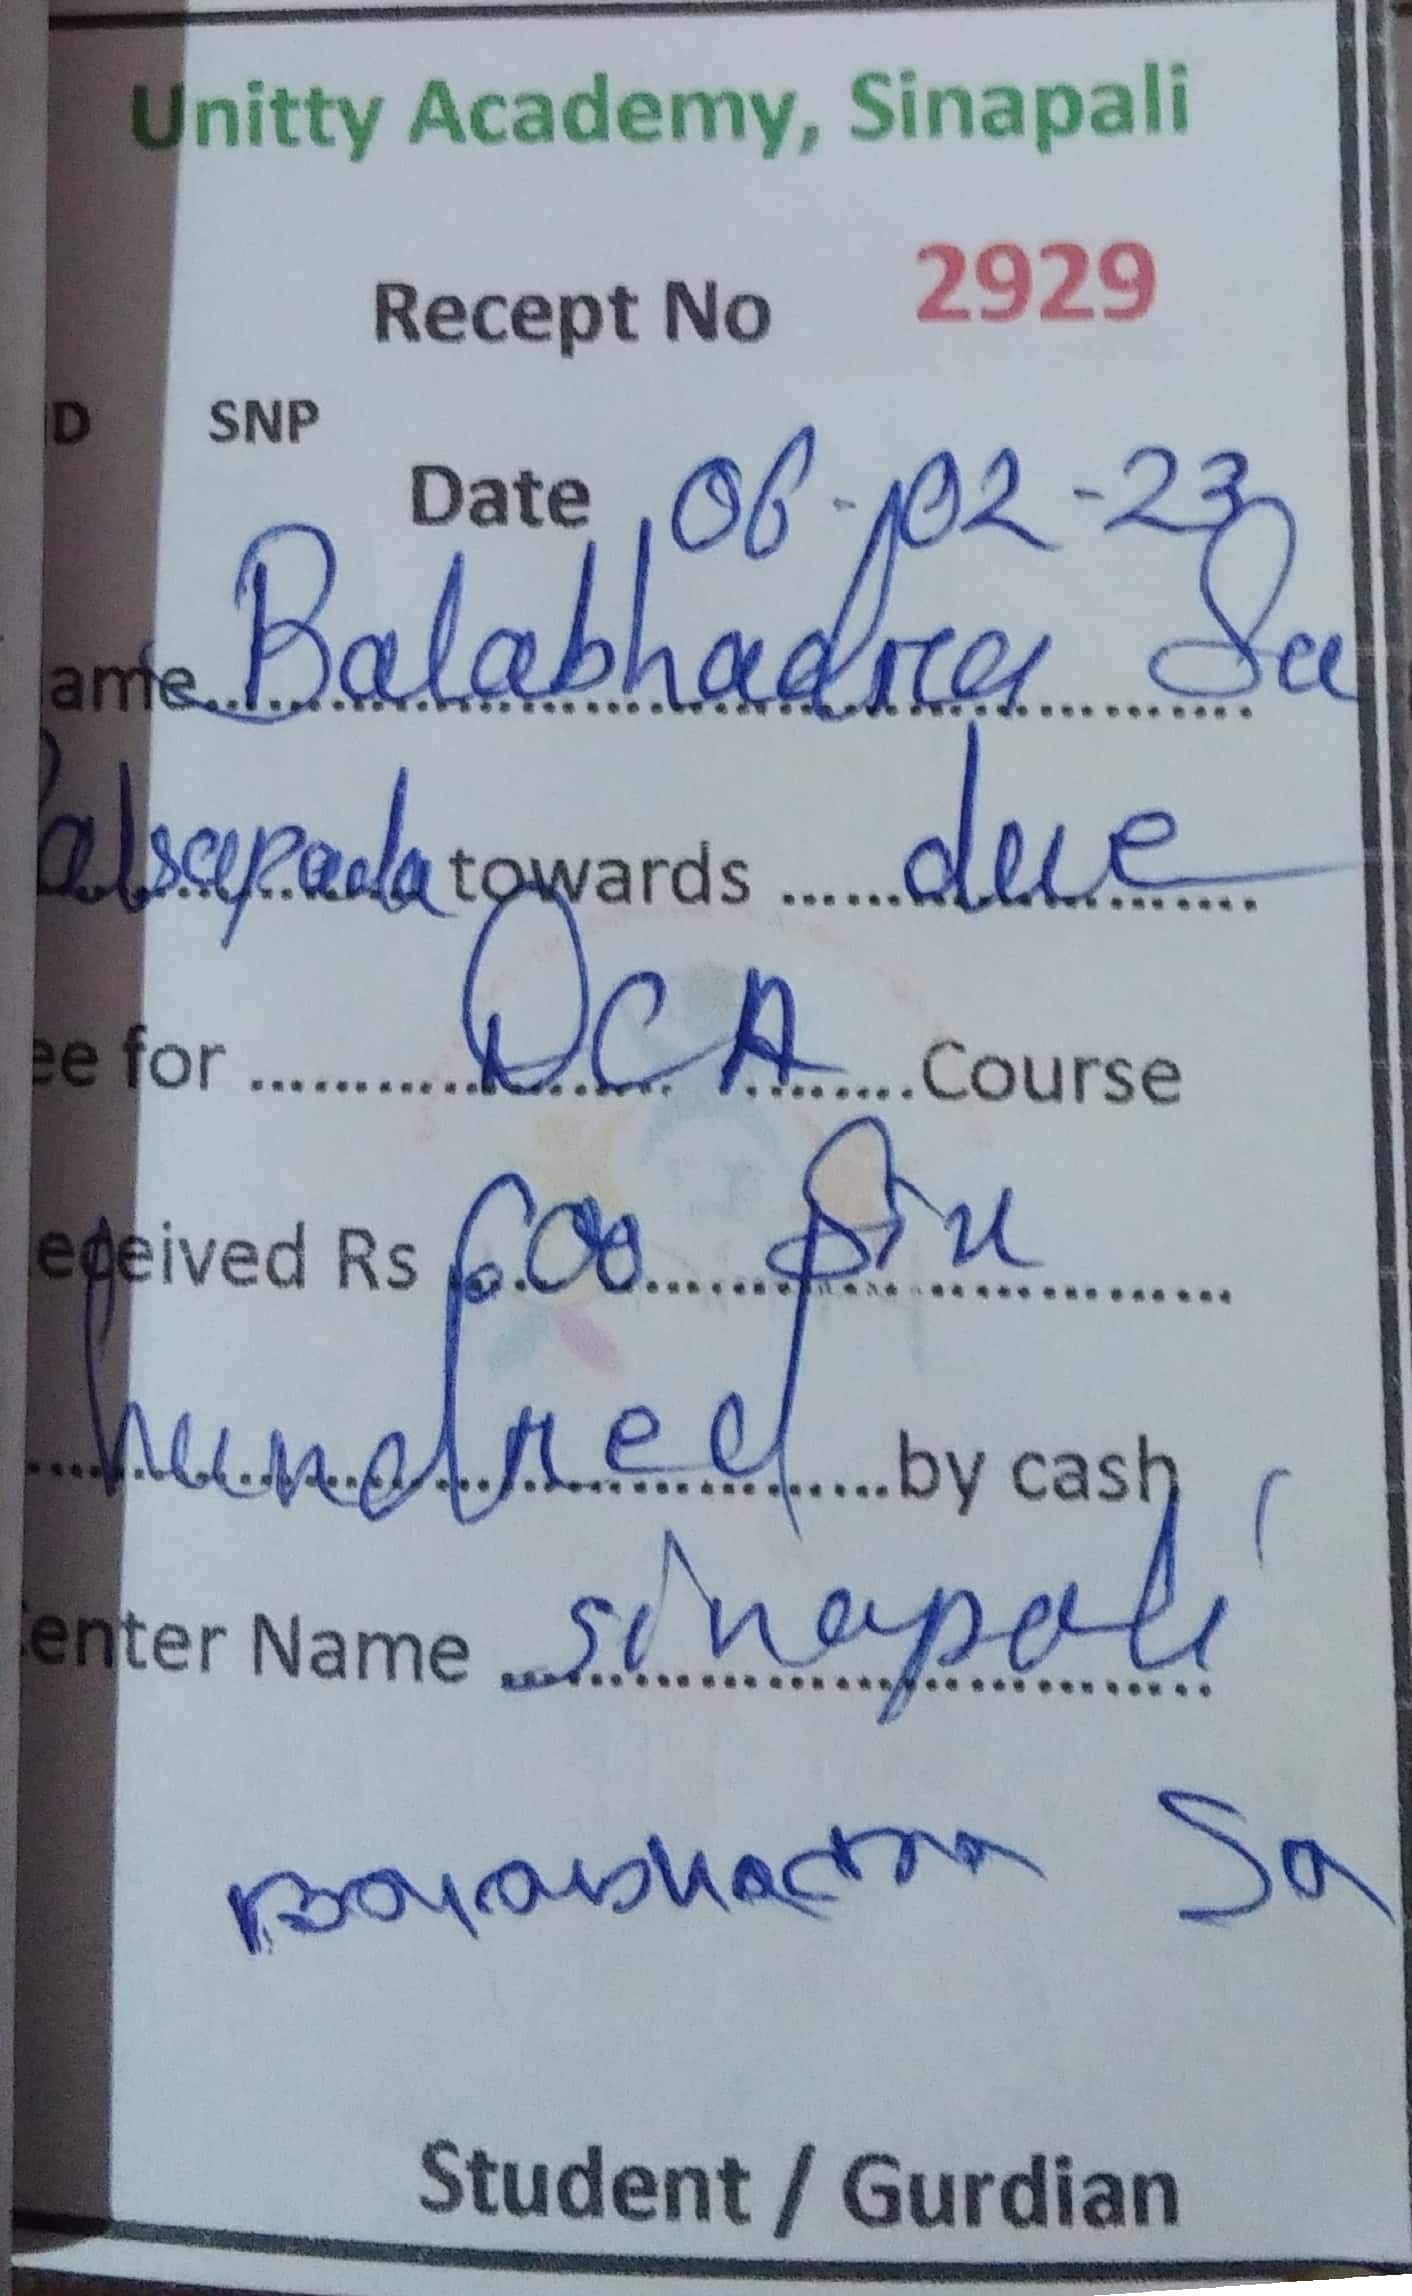 Unitty Academy, Sinapali
Recept No 2929
ID SNP
Date 06-02-23
ame Balabhadra Sa
towards due
ee for DCA Course
eceived Rs 600 Six
hundred by cash
enter Name Sinapali
Balabhadra Sa
Student / Gurdian